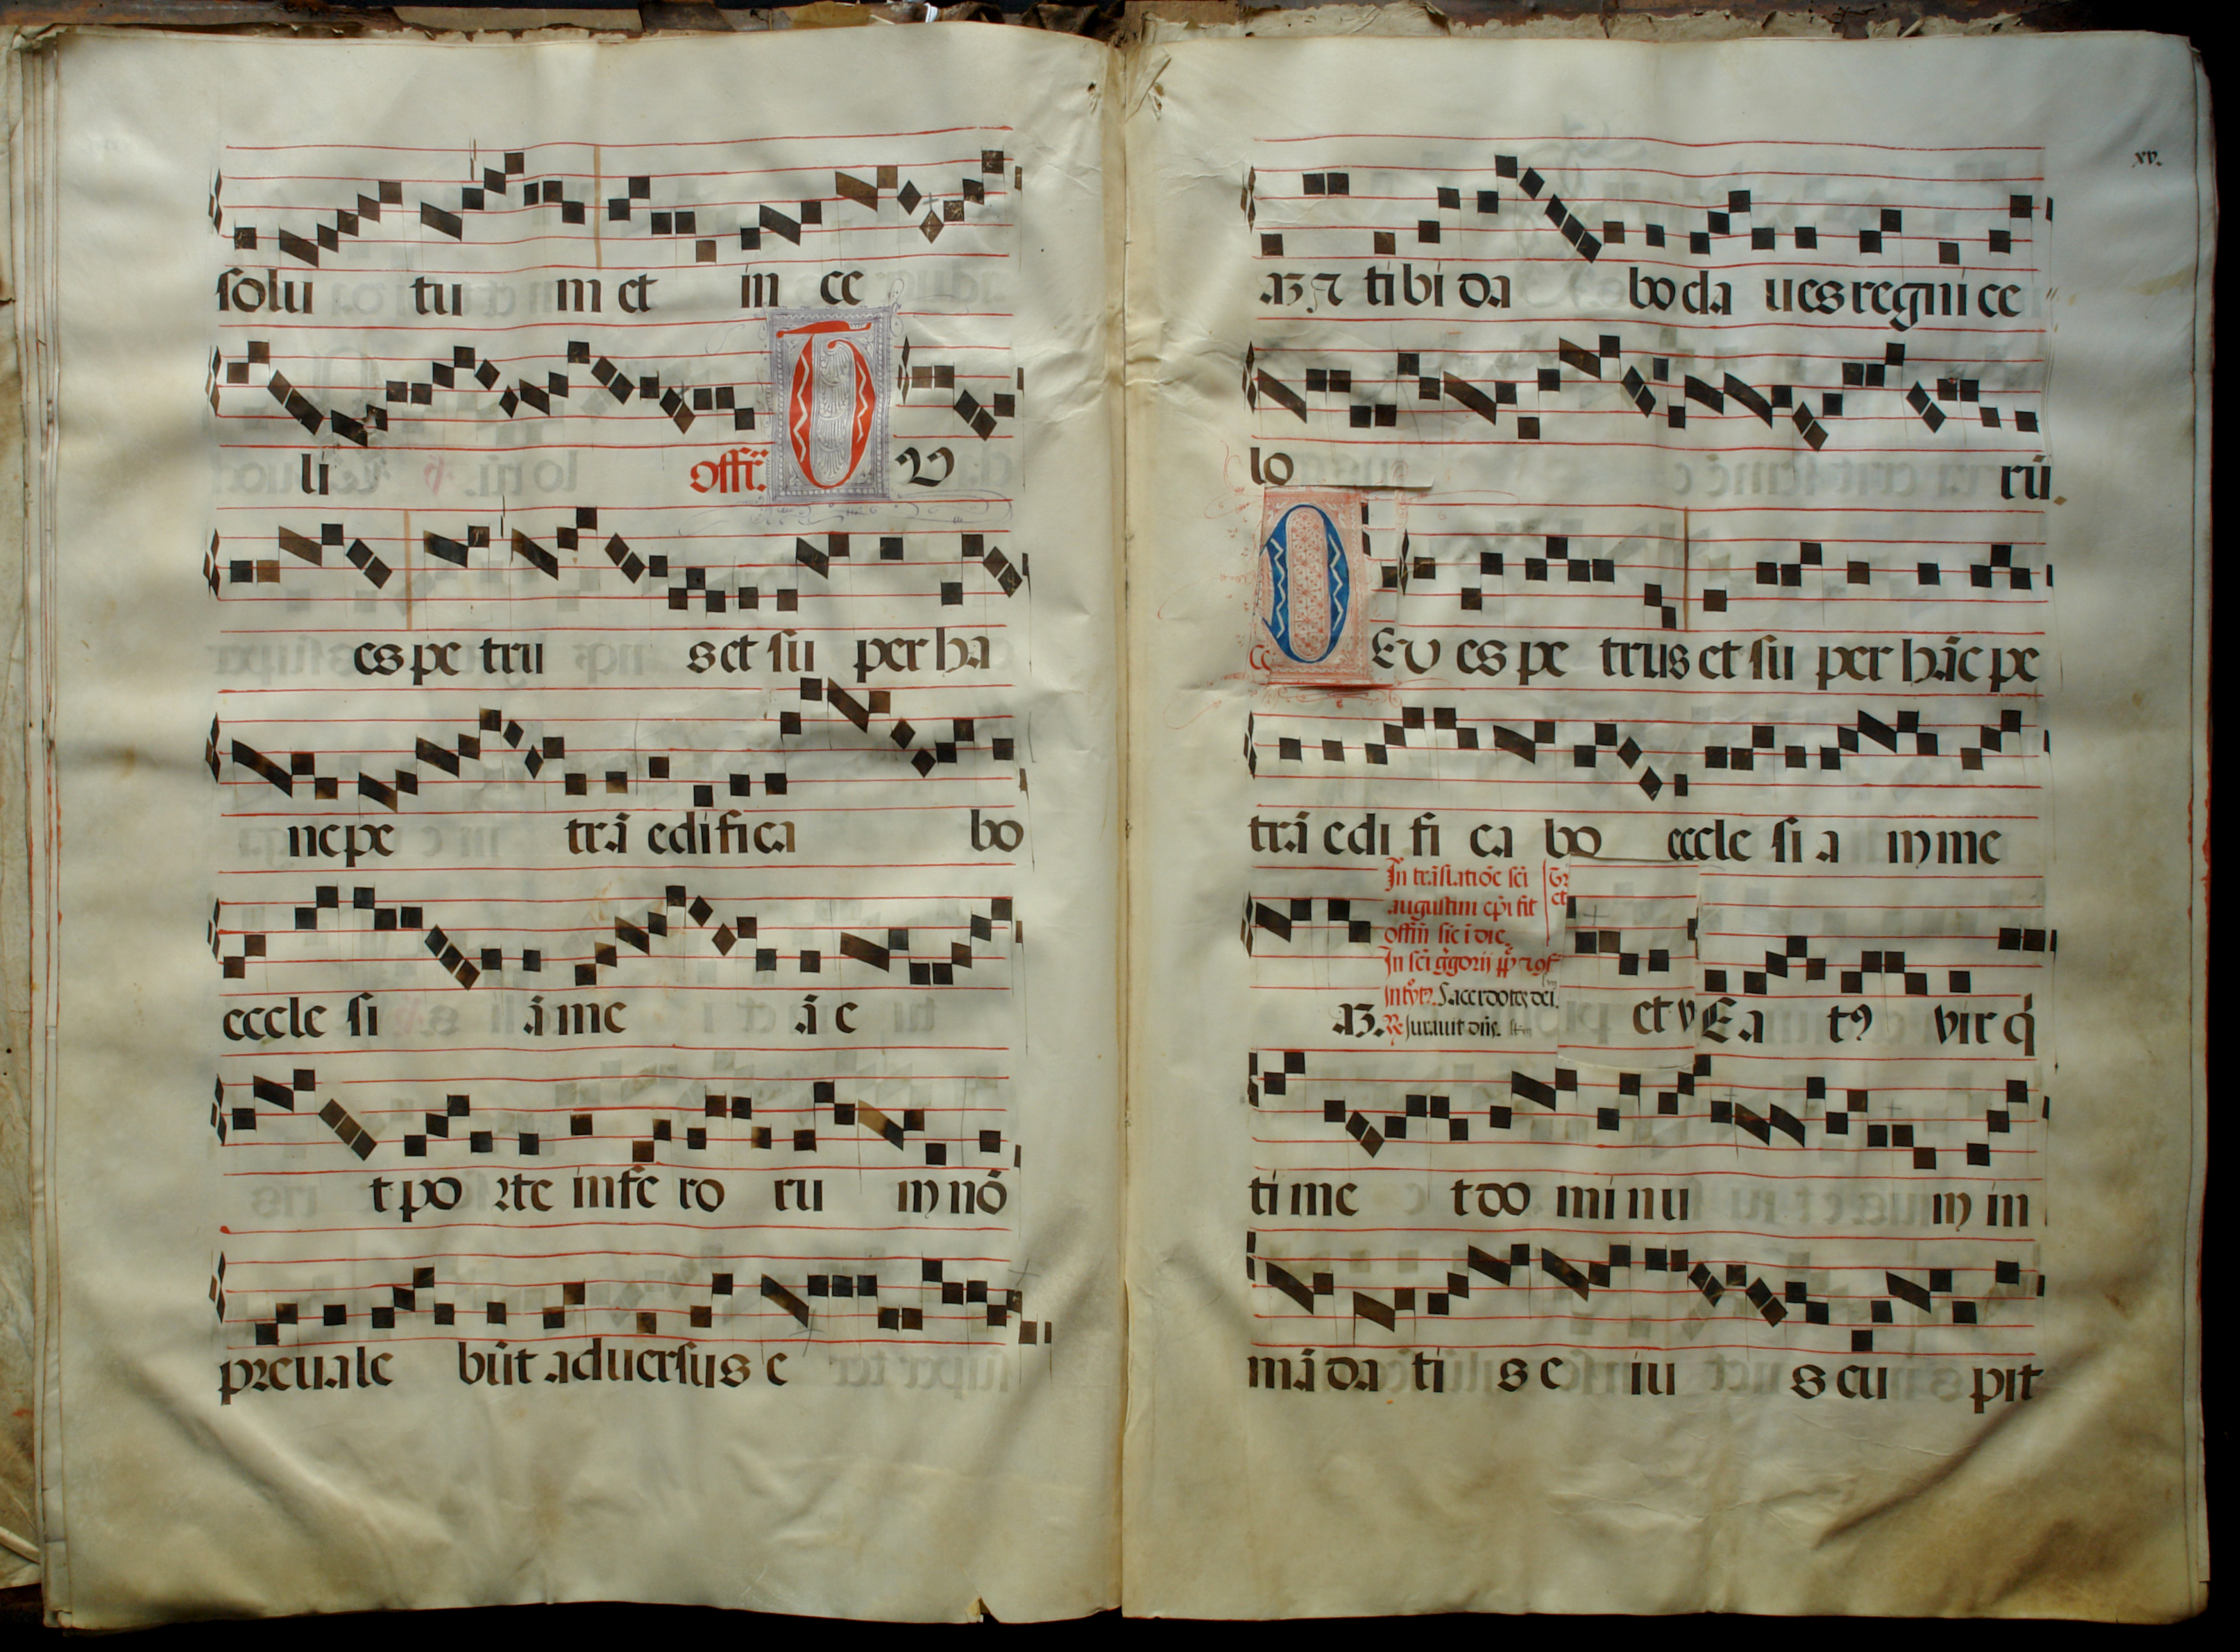 solu tu m et in ce
li offr̄. T V
es pe tru s et su per ha
ne pe trā edifica bo
eccle si ā me ā e
t po rte infe ro ru m nō
preuale būt aduersus e
xv.
aʒ ⁊ tibi da bo cla ues regni ce
lo rū.
T Ev es pe trus et su per hāc pe
trā edi fi ca bo eccle si a m me
In trāslatiōe sci
augustini ep̄i fit
offm̄ sic ī die
In sci ḡgorij pp̄
Sacerdotes dei.
aʒ. Iurauit dn̄s.
et v Ea tꝰ vir q̇
ti me t do mi nu m in
mā da ti s e iu s cu pit